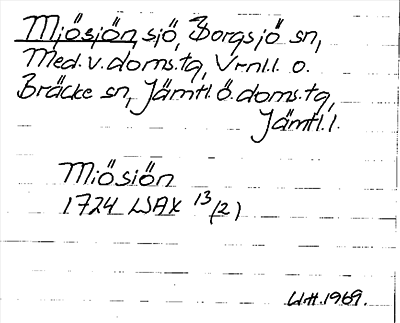 Mjösjön, sjö, Borgsjö sn,
Med.v.doms.tg, Vrnl.l. o.
Bräcke sn, Jämtl.ö.doms.tg,
Jämtl.l.
Miösiön
1724 LSAX 13/2)
U.H. 1969.